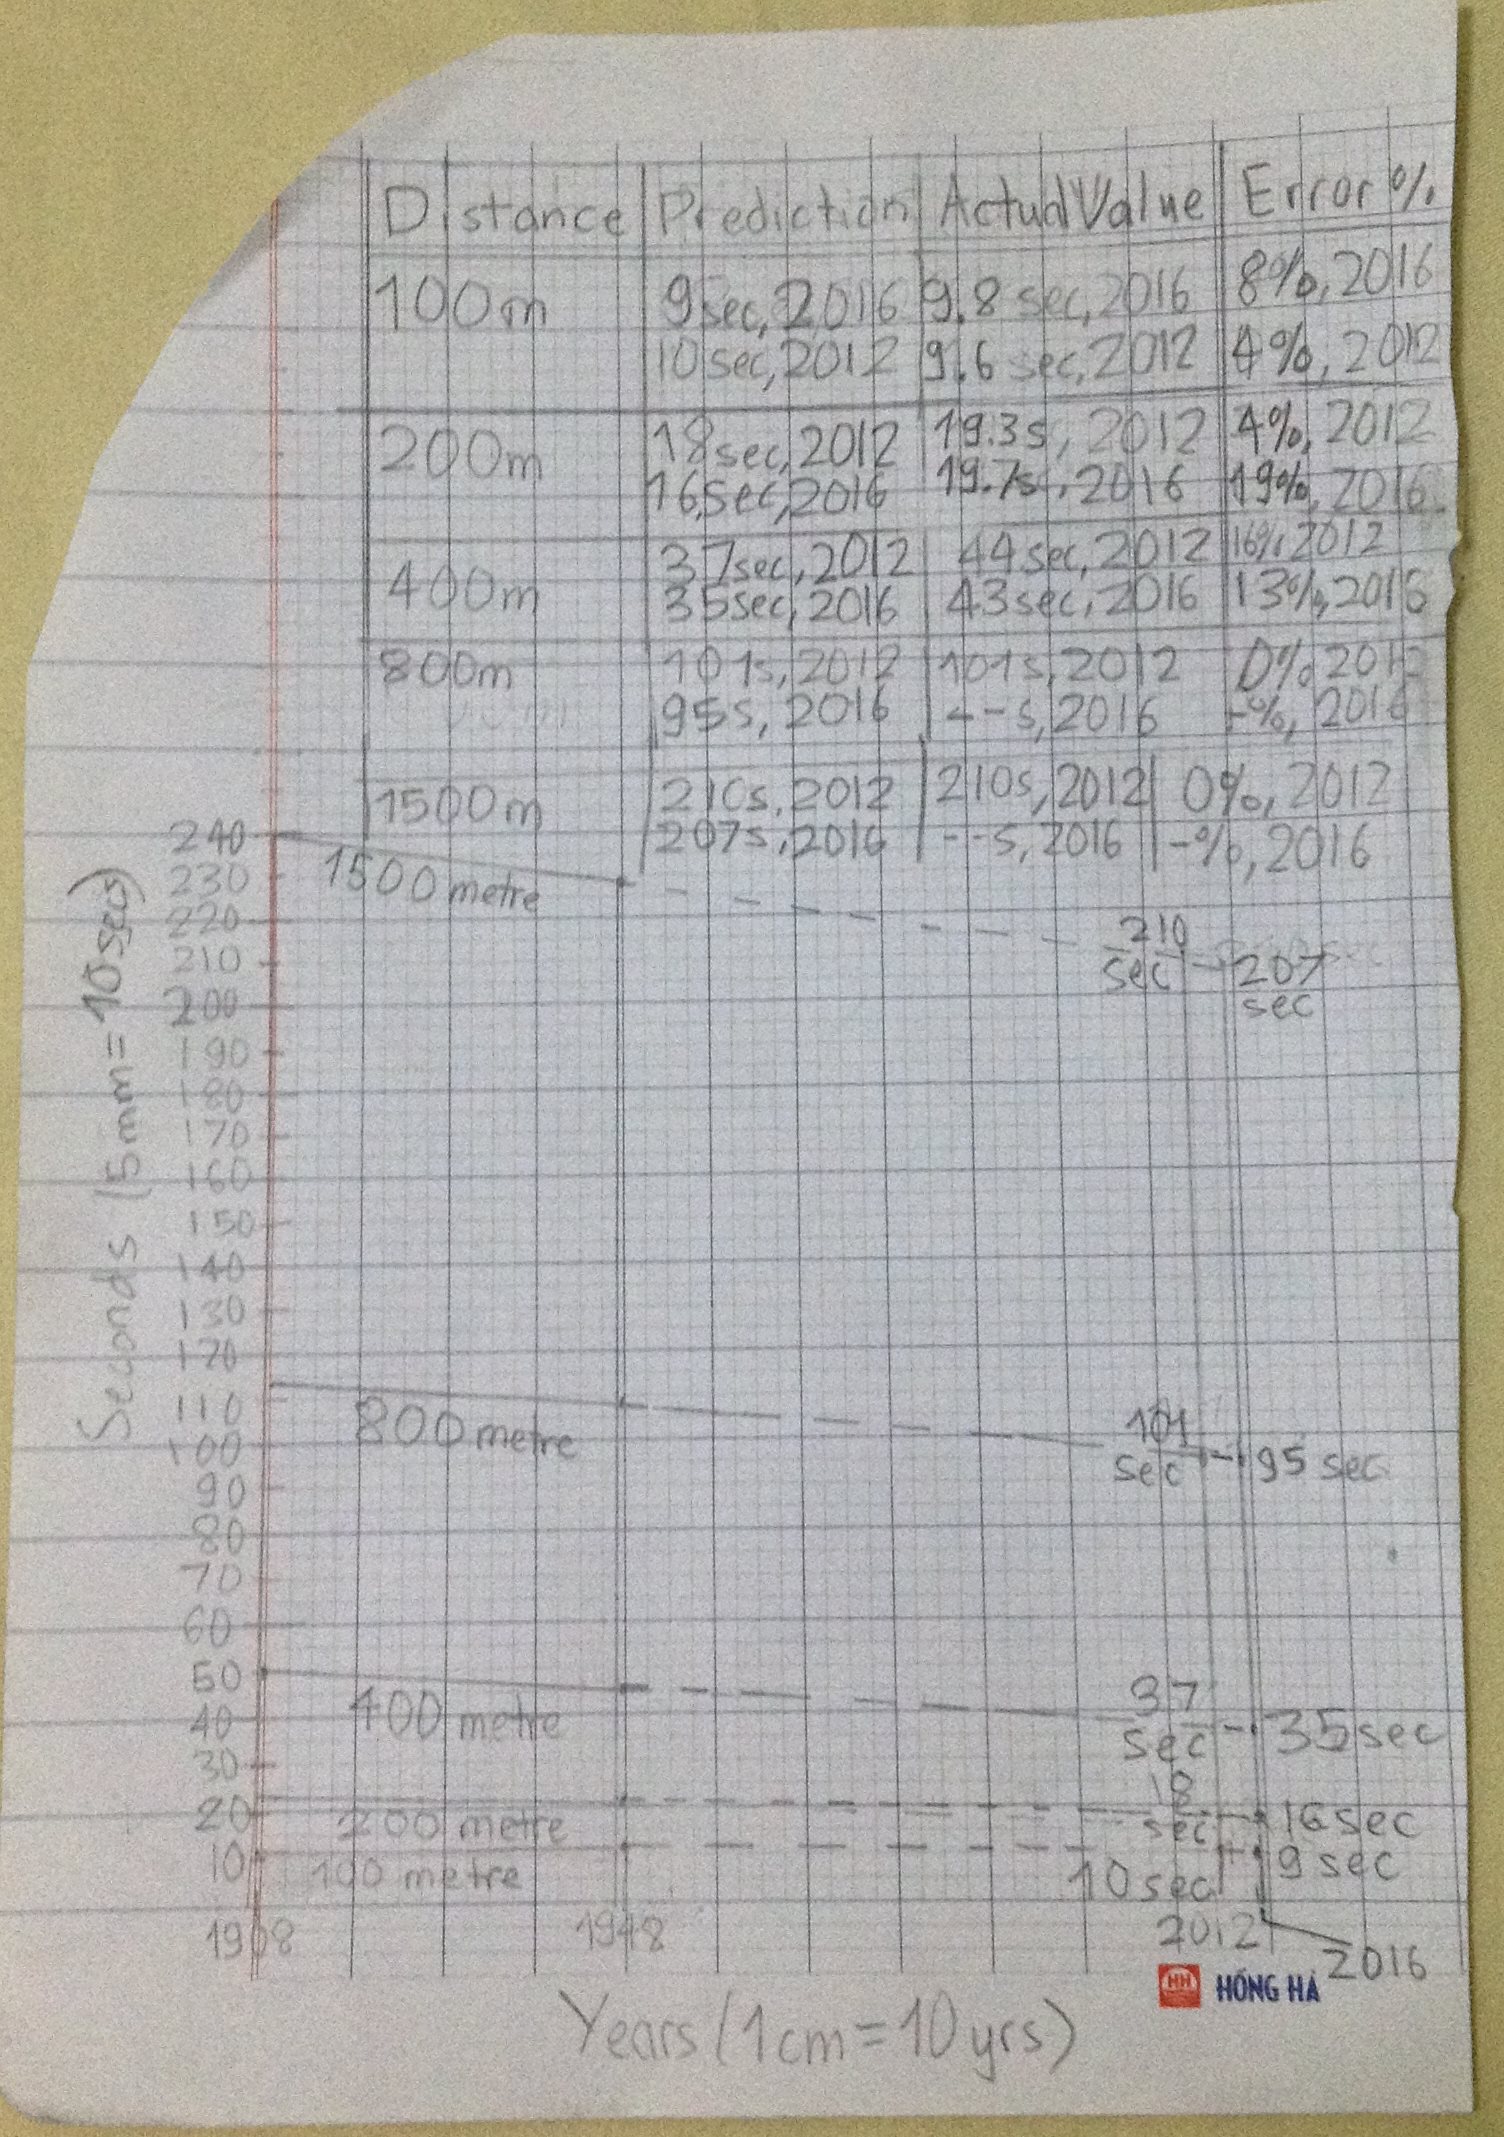 Distance Prediction Actual Value Error %
100m 9sec, 2016 9.8 sec, 2016 8%, 2016
10sec, 2012 9.6 sec, 2012 4%, 2012
200m 18sec, 2012 19.3s, 2012 4%, 2012
16sec, 2016 19.7s, 2016 19%, 2016
400m 37sec, 2012 44sec, 2012 16%, 2012
35sec, 2016 43sec, 2016 13%, 2016
800m 101s, 2012 101s, 2012 0% 2012
95s, 2016 --s, 2016 -%, 2016
1500m 210s, 2012 210s, 2012 0%, 2012
207s, 2016 --s, 2016 -%, 2016
Seconds (5mm = 10secs)
240
230
220
210
200
190
180
170
160
150
140
130
120
110
100
90
80
70
60
50
40
30
20
10
1500 metre
210
sec
207
sec
800 metre
101
sec
95 sec
400 metre
37
sec
35 sec
200 metre
18
sec
16 sec
100 metre
10 sec
9 sec
1908 1948 2012 2016
HH HỒNG HÀ
Years (1cm = 10 yrs)